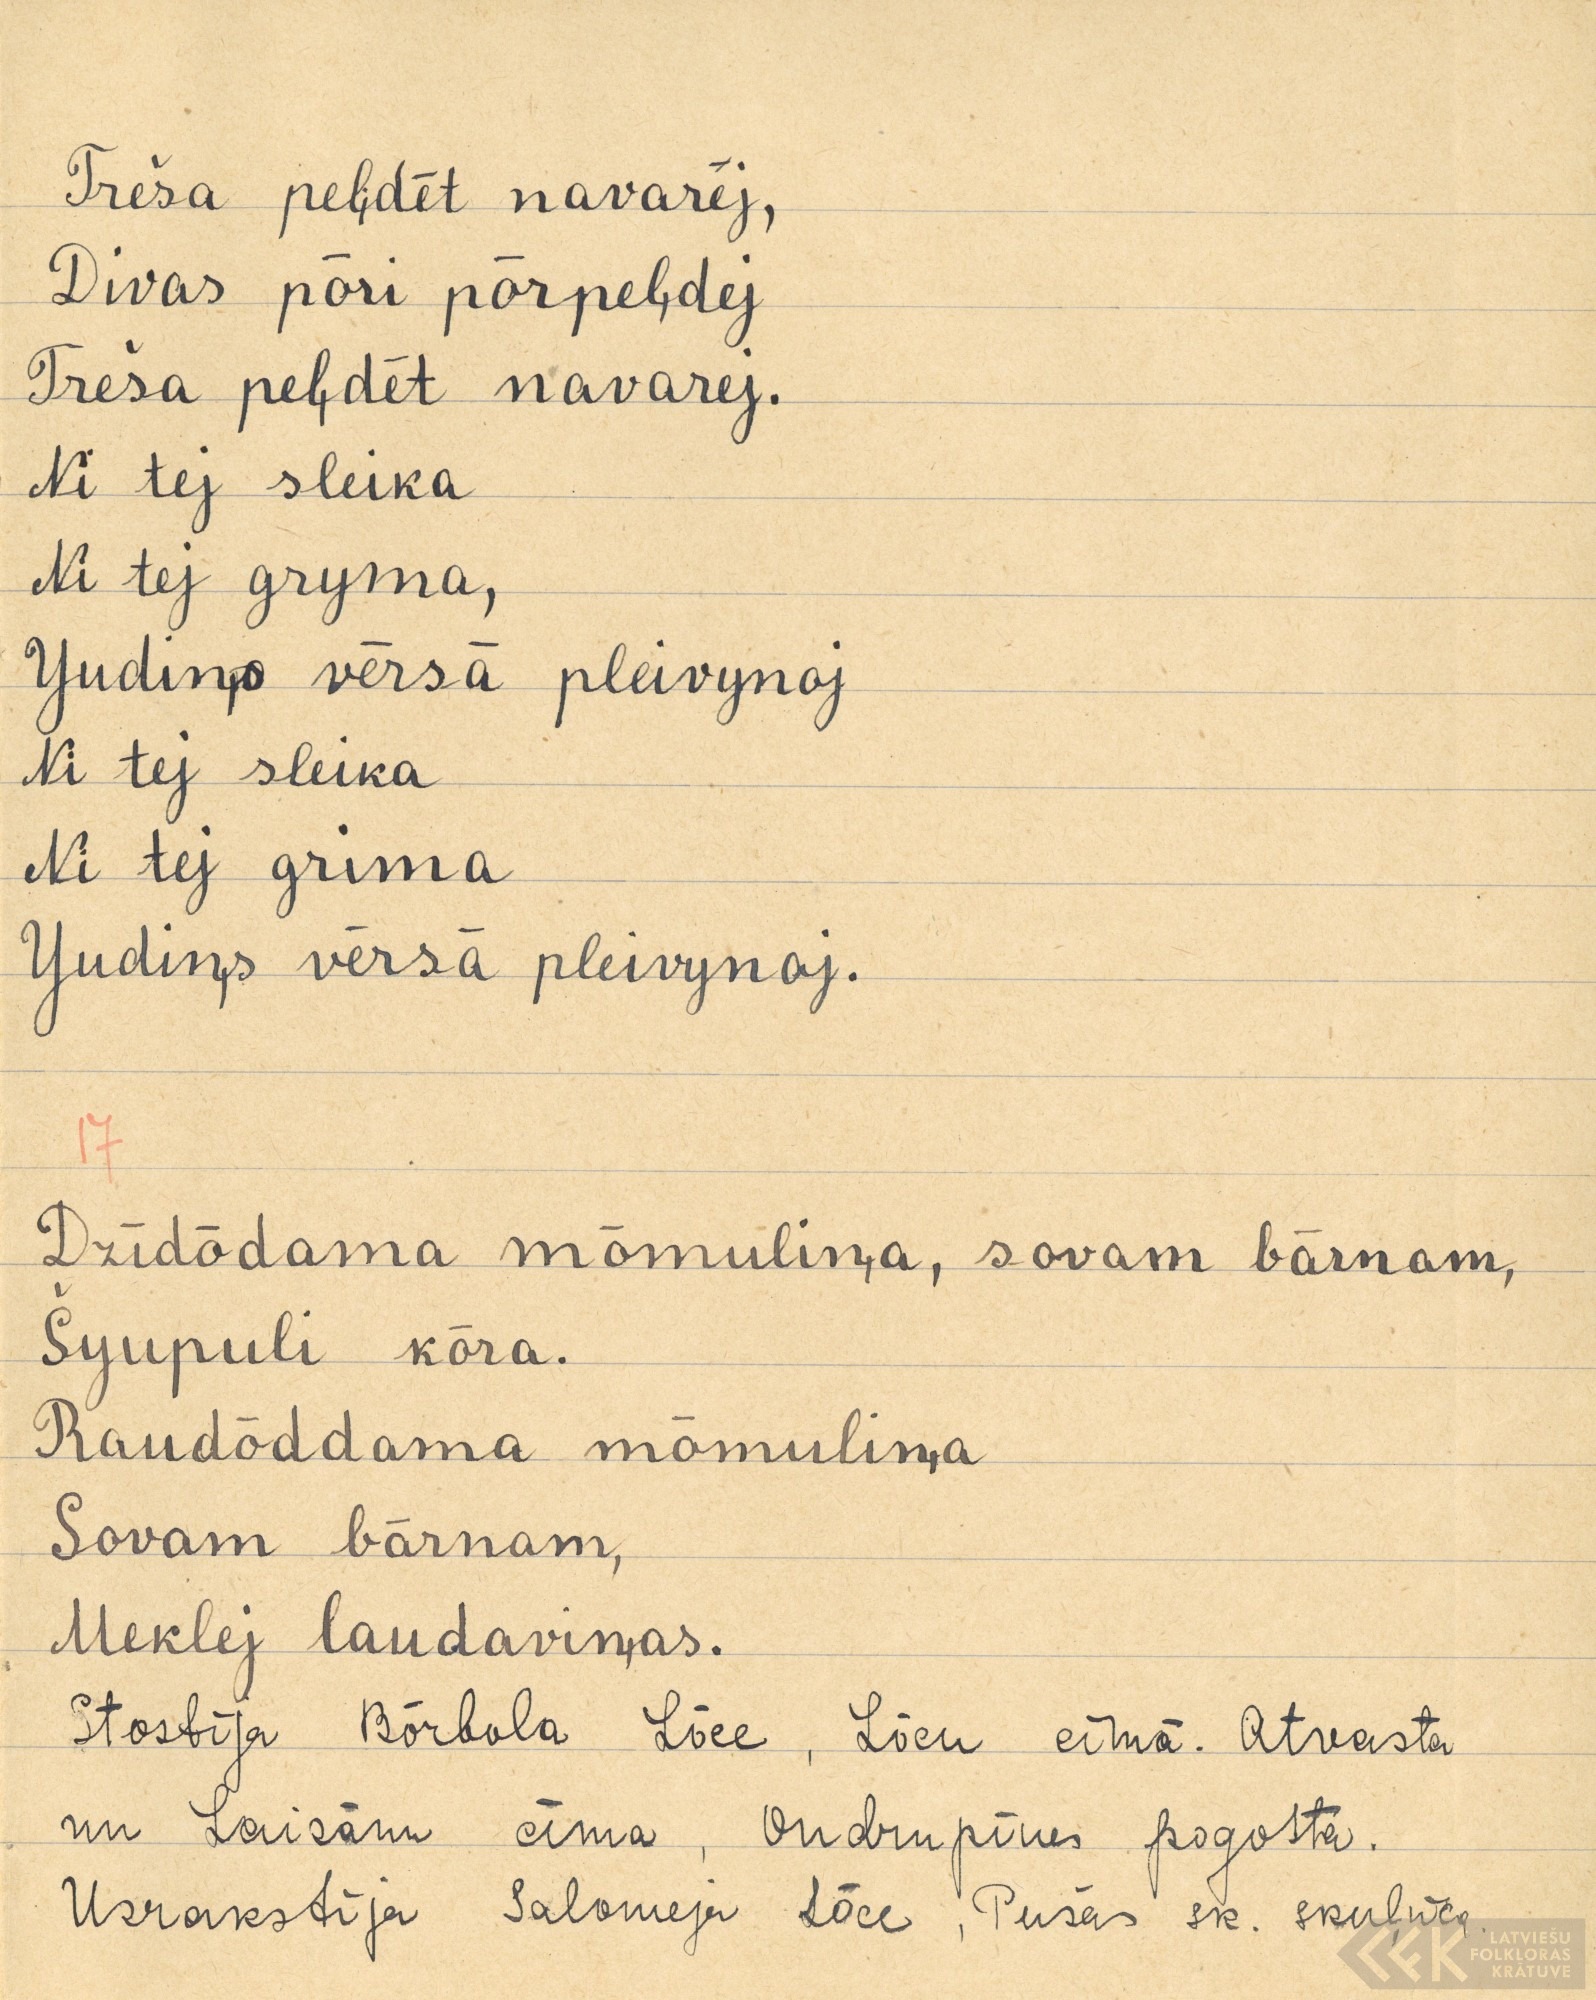 Treša peļdēt navarēj,
Divas pōri pōrpeļdej
Treša peļdēt navarej.
Ni tej sleika
Ni tej gryma,
Yudiņs vērsā pleivynoj
Ni tej sleika
Ni tej grima
Yudiņs vērsā pleivynoj.
17
Dzīdōdama mōmuliņa, sovam bārnam,
Šyupuli kōra.
Raudōddama mōmuliņa
Sovam bārnam,
Meklej laudaviņas.
Stostīja Bōrbola Lōce, Lōcu cīmā. Atvasta
nu Laizānu cīma, Ondrupīnes pogosta.
Uzrakstīja Salomeja Lōce, Pušās sk. skuļnīca.
LATVIEŠU
FOLKLORAS
KRĀTUVE